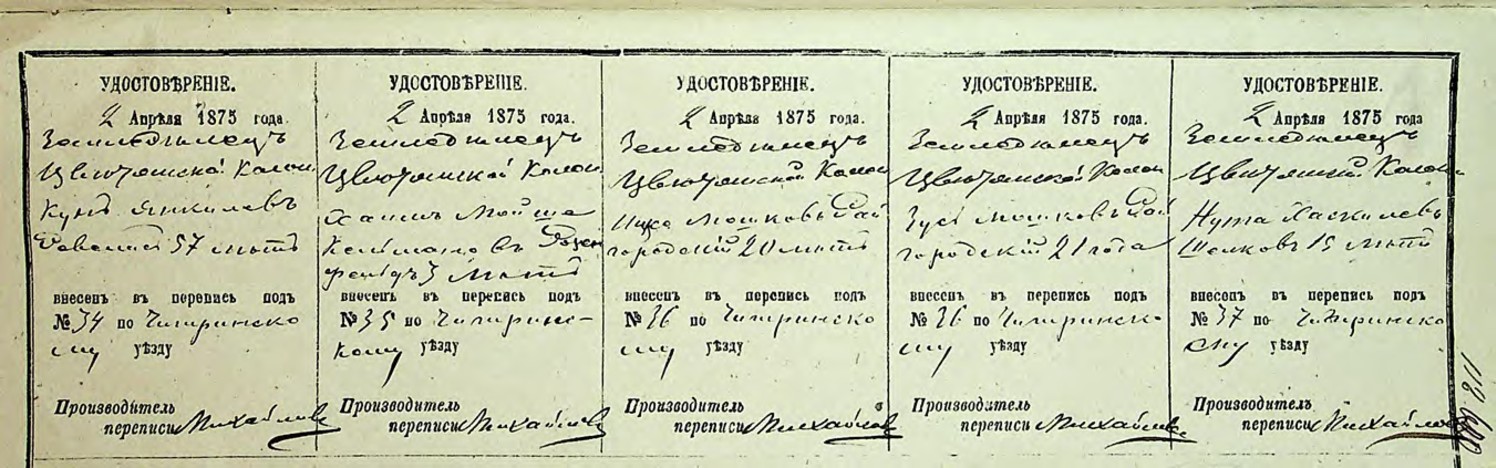 УДОСТОВѢРЕНІЕ.
2 Апрѣля 1875 года.
Земледѣлецъ
Цвютянской Колон.
Кунъ Янкилевъ
57 лѣтъ
внесенъ въ перепись подъ
№ 34 по Чигиринско
му уѣзду
Производитель
переписи Михайловъ
УДОСТОВѢРЕНІЕ.
2 Апрѣля 1875 года.
Земледѣлецъ
Цвютянской Колон.
Хаимъ Мойше
Келмановъ Розен
фельдъ 3 лѣтъ
внесенъ въ перепись подъ
№ 35 по Чигиринс-
кому уѣзду
Производитель
переписи Михайловъ
УДОСТОВѢРЕНІЕ.
2 Апрѣля 1875 года.
Земледѣлецъ
Цвютянской Колон
Мошковъ Рай
городскій 20 лѣтъ
внесенъ въ перепись подъ
№ 36 по Чигиринско
му уѣзду
Производитель
переписи Михайловъ
УДОСТОВѢРЕНІЕ.
2 Апрѣля 1875 года.
Земледѣлецъ
Цвютянской Колон
Зусь Мошковъ Рай
городскій 21 года
внесенъ въ перепись подъ
№ 36 по Чигиринско
му уѣзду
Производитель
переписи Михайловъ
УДОСТОВѢРЕНІЕ.
2 Апрѣля 1875 года
Земледѣлецъ
Цвютянской Колон
Нута Хаскилевъ
15 лѣтъ
внесенъ въ перепись подъ
№ 37 по Чигиринско
му уѣзду
Производитель
переписи Михайловъ